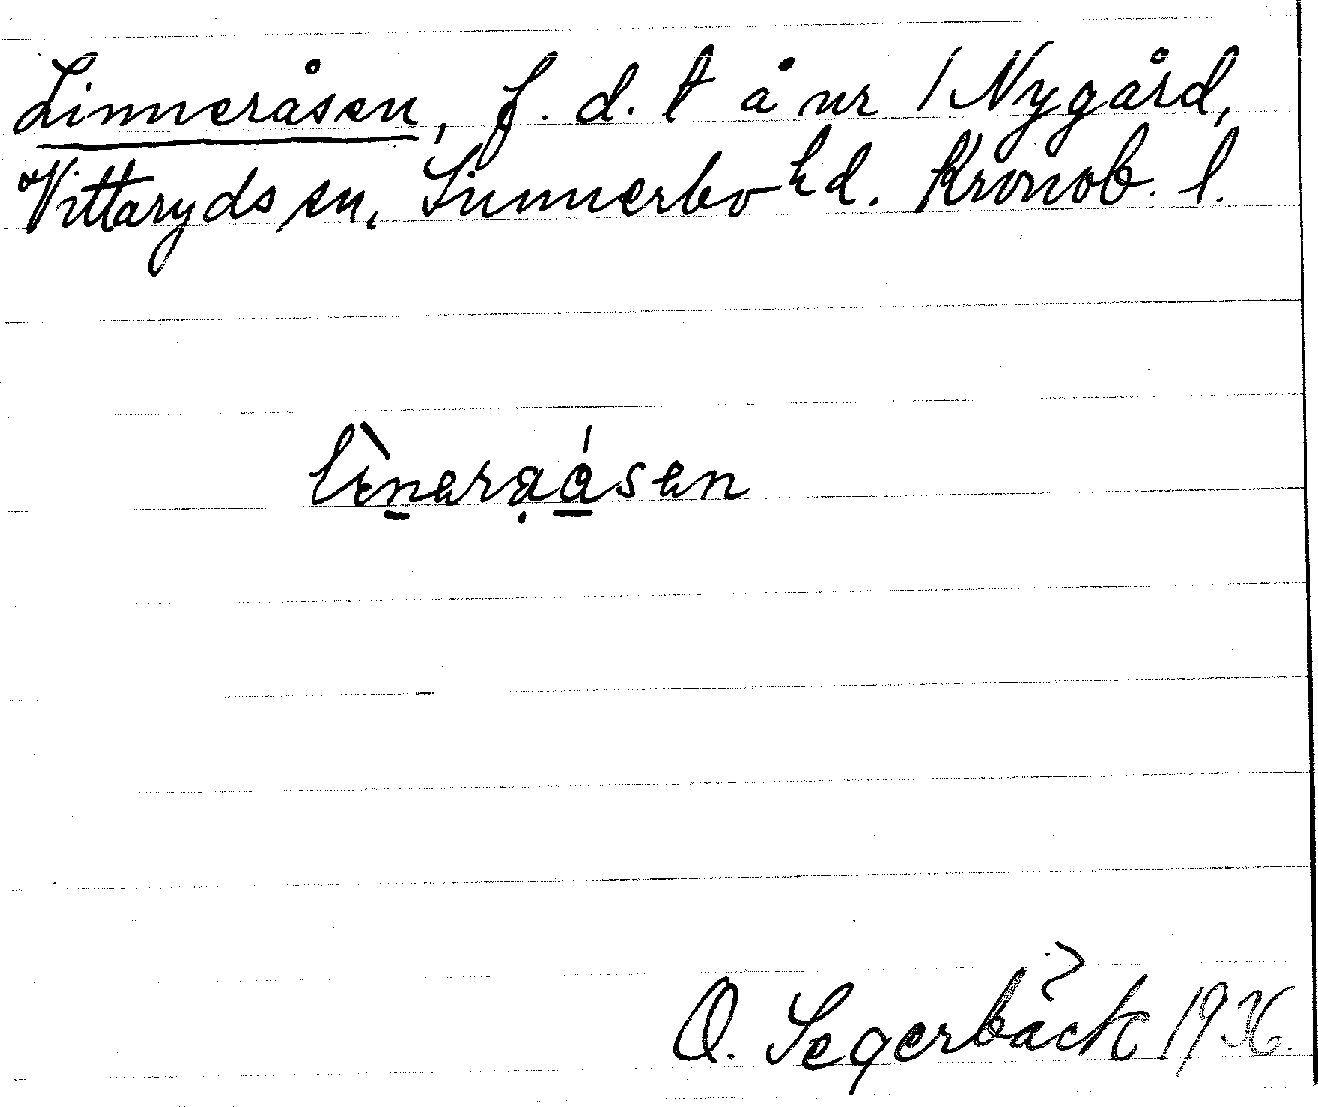 Linneråsen, f. d. t å nr 1 Nygård,
Vittaryds sn, Sunnerbo hd. Kronob. l.
lìneraåsen
O. Segerbäck 1936.